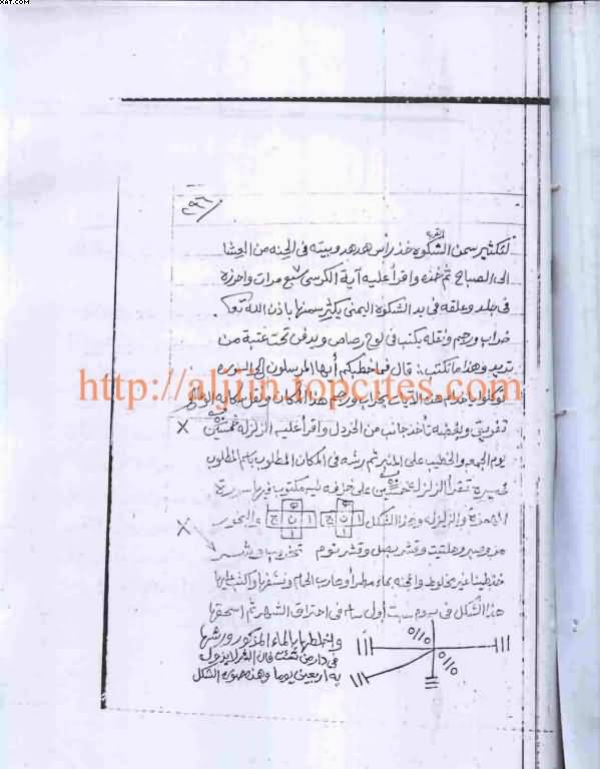 XAT.COM
٢٩٦
لتكثير سمن الشكوه خذ رأس هدهد وبيته في الجنه من العشا
الى الصباح ثم خذه واقرأ عليه آية الكرسي سبع مرات واحرزه
في جلد وعلقه في يد الشكوة اليمنى يكثر سمنها باذن الله تعا
خراب ورجم ونقله يكتب في لوح رصاص ويدفن تحت عتبة من
تريد وهذا ما تكتب: قال فما خطبكم أيها المرسلون إلى السوره
توكلوا يا خدام هذه بخراب ورجم هذا المكان ونقل مكانه
http://aljnin.topcites.com
تفريق وبغضه تأخذ جانب من الخردل واقرأ عليه الزلزله خمسين X
يوم الجمعه والخطيب على المنبر ثم رشه في المكان المطلوب باسم المطلوب
تقرأ الزلزله على خزفه نيه مكتوب فيها سورة
الهمزة والزلزله وهذا الشكل والبخور X
مر وصبر وحلتيت وقشر بصل وقشر ثوم تخريب
خذ طينا غير مخلوط واعجنه بماء مطر أو حارب الحام ونشفها واكتب عليها
هذا الشكل في يوم سبت أول ساعه في احتراق الشهر ثم اسحقها
واخلطها بالماء المذكور ورشها
في دار من شئت فان الشر لا يزول
به اربعين يوما وهذه صورة الشكل